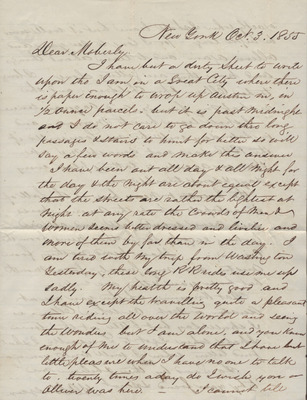 New York Oct. 3. 1855
Dear Moberly,
I have but a dirty sheet to write
upon tho I am in a Great City where there
is paper enough to wrap up Austin in, in
1/2 ounce parcels. but it is past midnight
and I do not care to go down thro long
passages & stairs to hunt for better so will
say a few words and make this answer
I have been out all day & all night for
the day & the night are about equal except
that the streets are rather the lightest at
night at any rate the crowds of Men &
Women seems better dressed and livelier and
more of them by far than in the day. I
am tired with my trip from Washington
Yesterday, these long RR rides use me up
sadly. My health is pretty good and
I have except the travelling quite a pleasant
time riding all over the world and seeing
the Wonders. but I am alone, and you know
enough of me to understand that I have but
little pleasure when I have no one to talk
to. twenty times a day do I wish you or
Oliver was here. I cannot tell